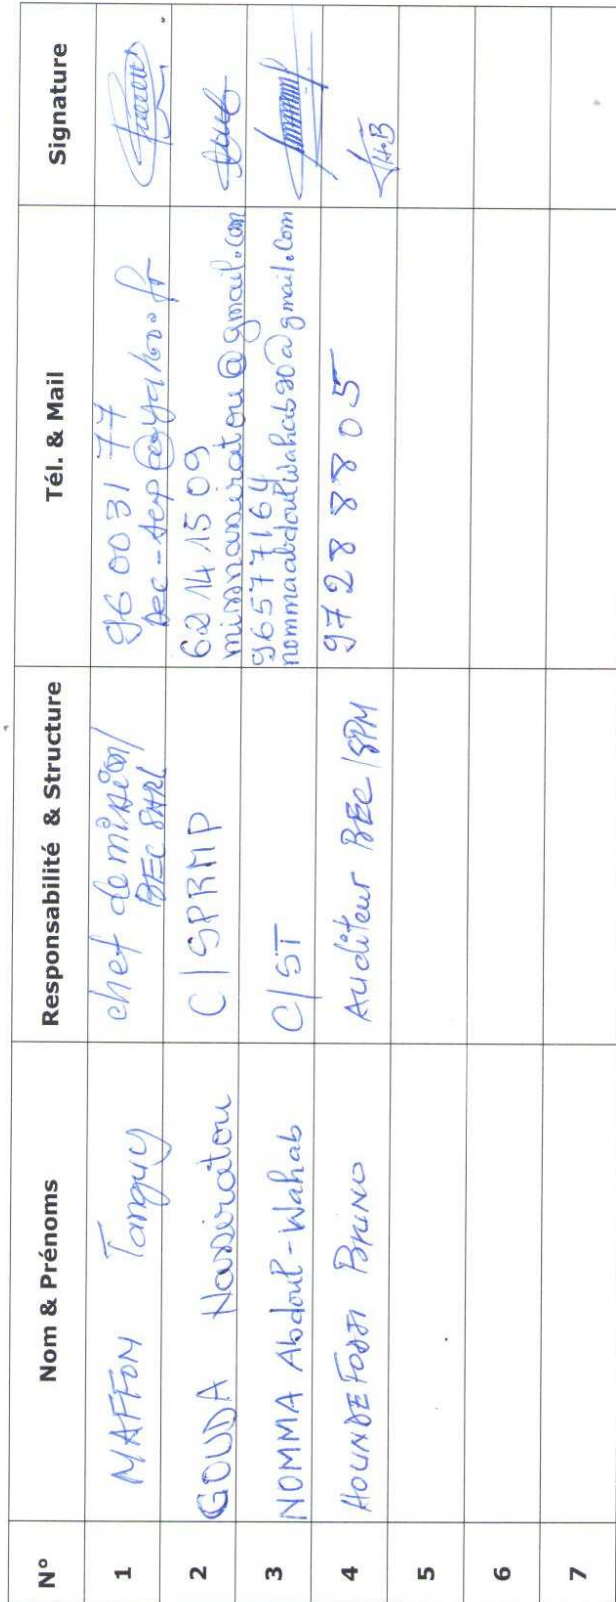 N° Nom & Prénoms Responsabilité & Structure Tél. & Mail Signature
1 MAFFON Tanguy chef de mission/ 96 00 31 77
BEC SARL
2 GOUDA Nassiratou C/SPRMP 62 14 15 09
missnassiratou@gmail.com
3 NOMMA Abdoul-Wahab C/ST 96577164
nommaabdoulwahab90@gmail.com
4 HOUNDEFODJI BRUNO Auditeur BEC/SPM 97288805
5
6
7